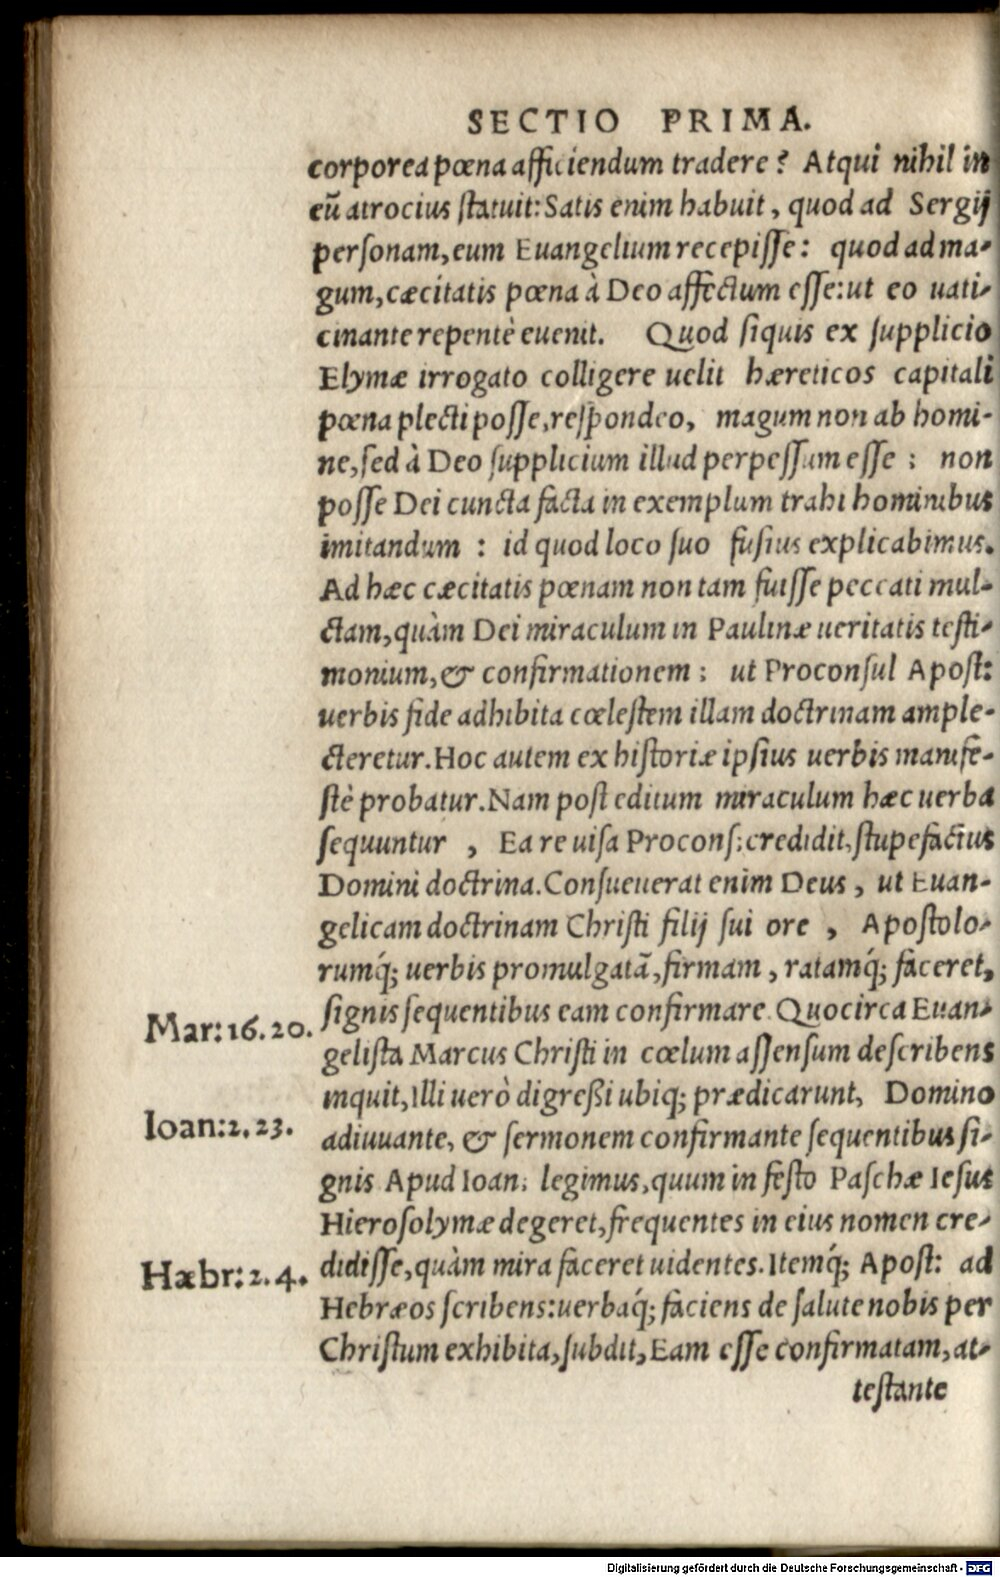 SECTIO PRIMA.
corporea pœna afficiendum tradere? Atqui nihil in
eũ atrocius ſtatuit: Satis enim habuit, quod ad Sergij
perſonam, eum Euangelium recepiſſe: quod ad ma-
gum, cæcitatis pœna à Deo affectum eſſe: ut eo uati-
cinante repentè euenit. Quod ſiquis ex ſupplicio
Elymæ irrogato colligere uelit hæreticos capitali
pœna plecti poſſe, reſpondeo, magum non ab homi-
ne, ſed à Deo ſupplicium illud perpeſſum eſſe: non
poſſe Dei cuncta facta in exemplum trahi hominibus
imitandum: id quod loco ſuo fuſius explicabimus.
Ad hæc cæcitatis pœnam non tam fuiſſe peccati mul-
ctam, quàm Dei miraculum in Paulinæ ueritatis teſti-
monium, & confirmationem: ut Proconſul Apoſt:
uerbis fide adhibita cœleſtem illam doctrinam ample-
cteretur. Hoc autem ex hiſtoriæ ipſius uerbis manife-
ſtè probatur. Nam poſt editum miraculum hæc uerba
ſequuntur, Ea re uiſa Proconſ: credidit, ſtupefactus
Domini doctrina. Conſueuerat enim Deus, ut Euan-
gelicam doctrinam Chriſti filij ſui ore, Apoſtolo-
rumq́; uerbis promulgatã, firmam, ratamq́; faceret,
ſignis ſequentibus eam confirmare. Quocirca Euan-
Mar: 16. 20.
geliſta Marcus Chriſti in cœlum aſſenſum deſcribens
inquit, Illi uerò digreßi ubiq; prædicarunt, Domino
Ioan: 2. 23.
adiuuante, & ſermonem confirmante ſequentibus ſi-
gnis. Apud Ioan: legimus, quum in feſto Paſchæ Ieſus
Hieroſolymæ degeret, frequentes in eius nomen cre-
didiſſe, quàm mira faceret uidentes. Itemq́; Apoſt: ad
Hæbr: 2. 4.
Hebræos ſcribens: uerbaq́; faciens de ſalute nobis per
Chriſtum exhibita, ſubdit, Eam eſſe confirmatam, at-
teſtante
Digitalisierung gefördert durch die Deutsche Forschungsgemeinschaft - DFG